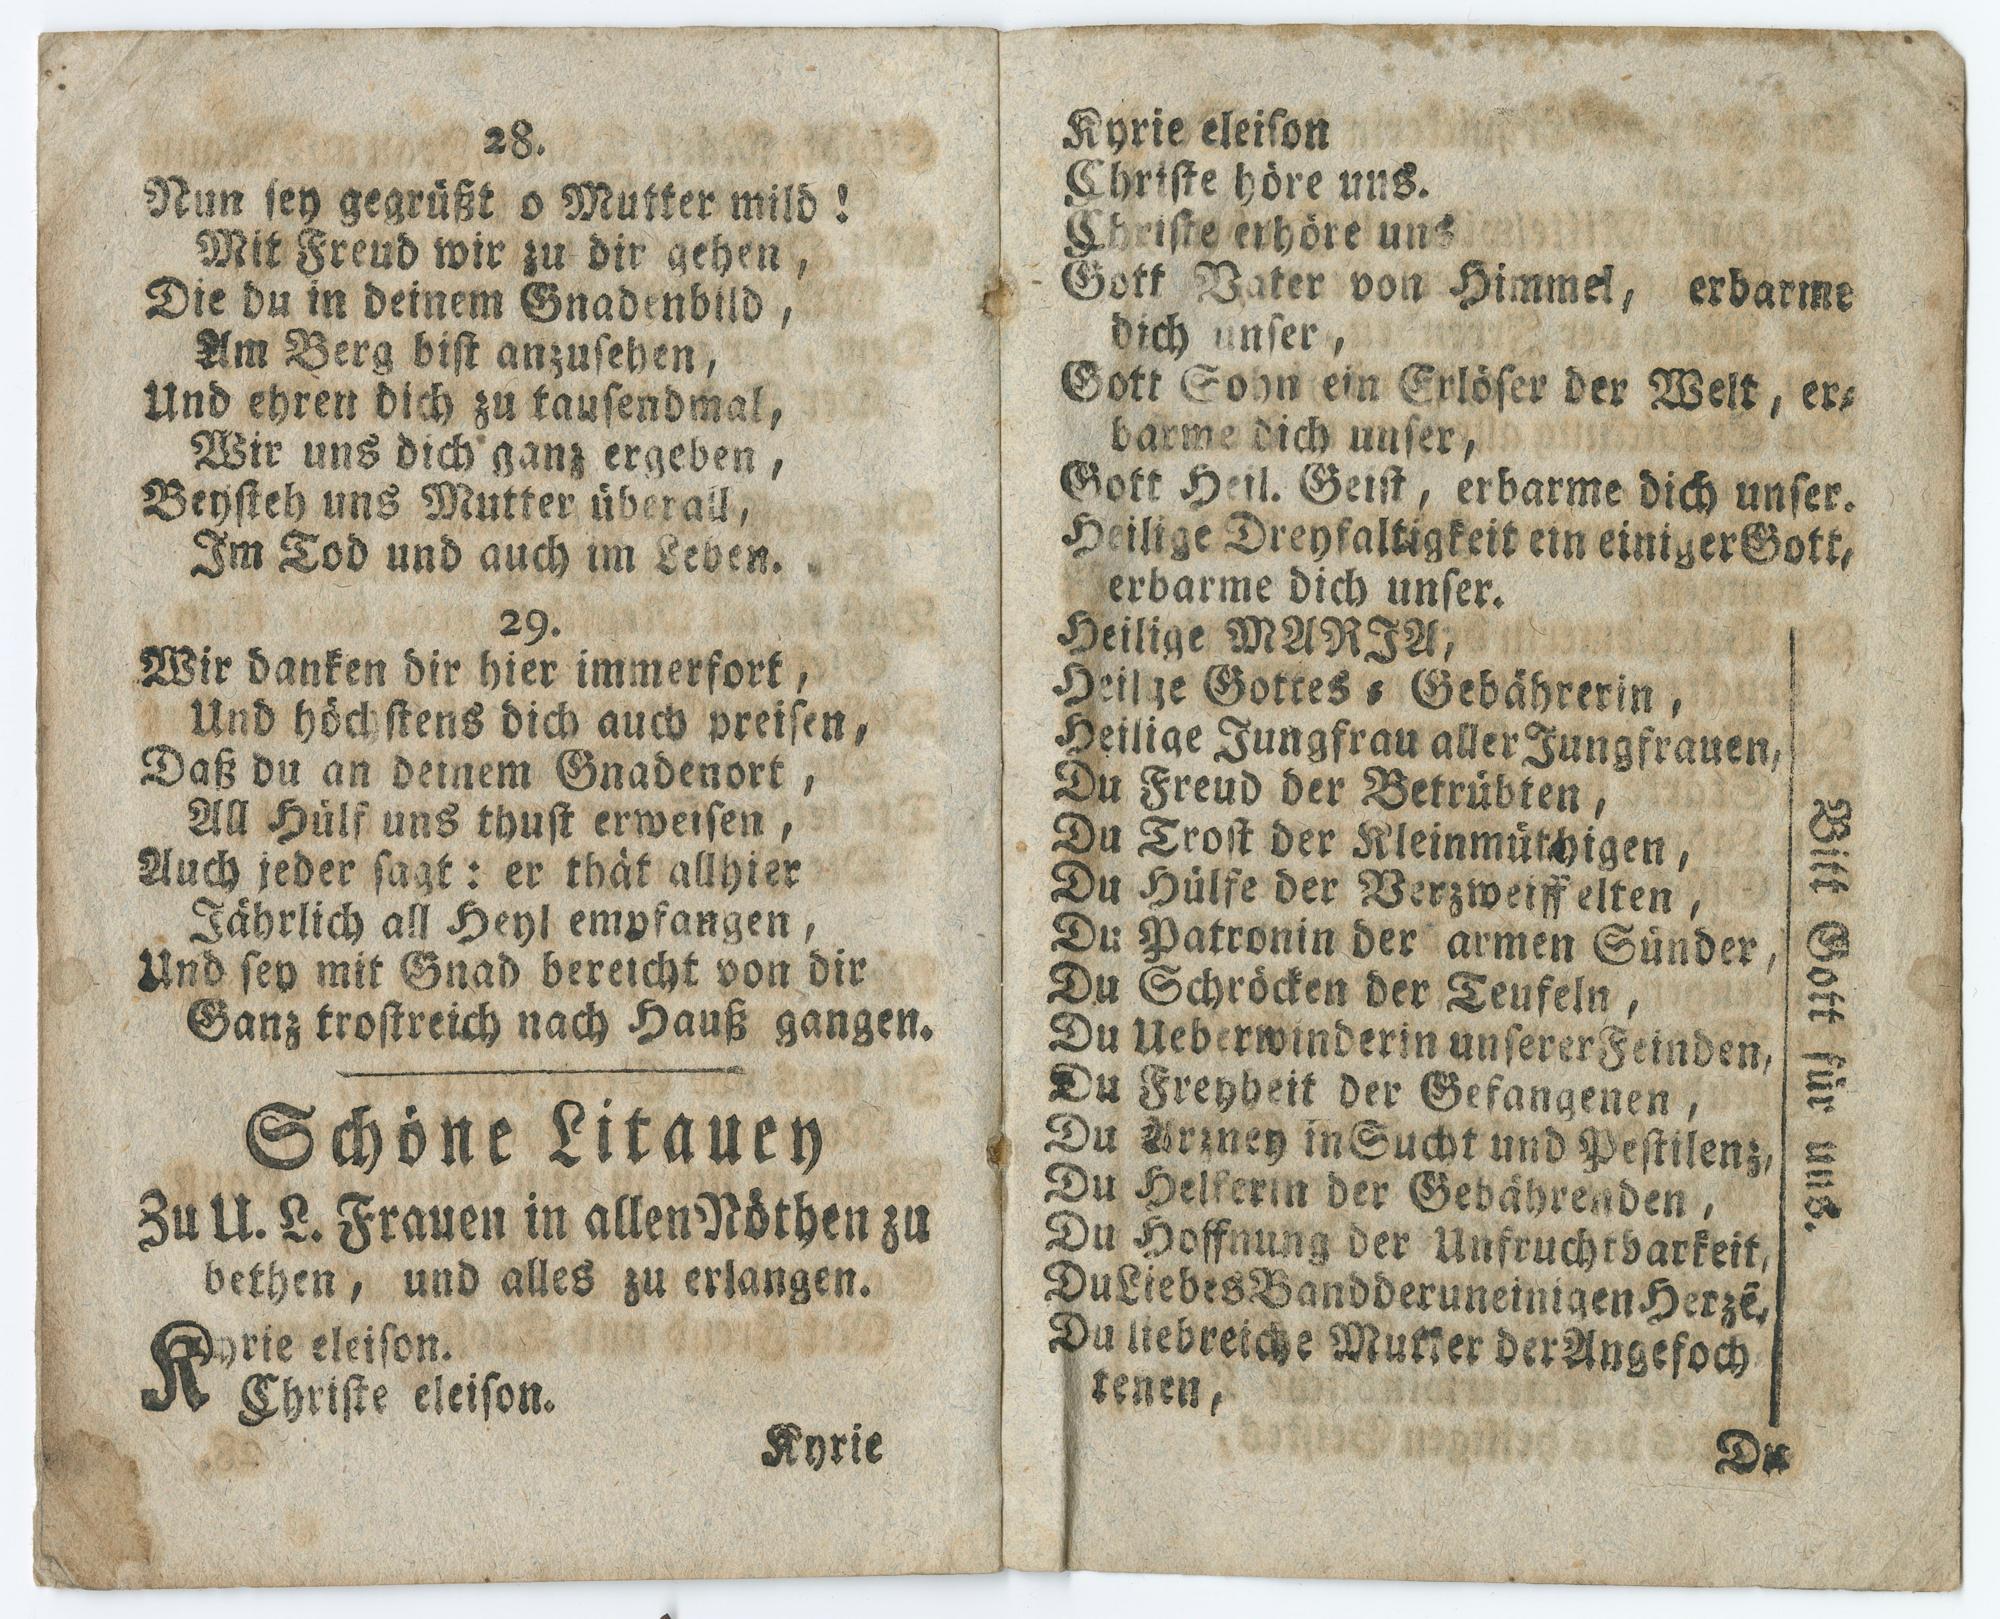 28.
Nun sey gegrüßt o Mutter mild !
Mit Freud wir zu dir gehen ,
Die du in deinem Gnadenbild ,
Am Berg bist anzusehen ,
Und ehren dich zu tausendmal,
Wir uns dich ganz ergeben ,
Beysteh uns Mutter überall,
Im Tod und auch im Leben.
29.
Wir danken dir hier immerfort ,
Und höchstens dich auch preisen,
Daß du an deinem Gnadenort ,
All Hülf uns thust erweisen ,
Auch jeder sagt : er thät allhier
Jährlich all Heyl empfangen ,
Und sey mit Gnad bereicht von dir
Ganz trostreich nach Hauß gangen.
Schöne Litauey
Zu U. L. Frauen in allen Nöthen zu
bethen , und alles zu erlangen.
Kyrie eleison.
Christe eleison.
Kyrie
Kyrie eleison
Christe höre uns.
Christe erhöre uns
Gott Vater von Himmel, erbarme
dich unser ,
Gott Sohn ein Erlöser der Welt , er⸗
barme dich unser ,
Gott Heil. Geist , erbarme dich unser.
Heilige Dreyfaltigkeit ein einiger Gott,
erbarme dich unser.
Heilige MARJA,
Heilige Gottes ⸗ Gebährerin ,
Heilige Jungfrau aller Jungfrauen,
Du Freud der Betrübten ,
Du Trost der Kleinmüthigen ,
Du Hülfe der Verzweiffelten ,
Du Patronin der armen Sünder ,
Du Schröcken der Teufeln ,
Du Ueberwinderin unserer Feinden,
Du Freyheit der Gefangenen ,
Du Arzney in Sucht und Pestilenz,
Du Helferin der Gebährenden ,
Du Hoffnung der Unfruchtbarkeit,
Du Liebes Band der uneinigen Herzē,
Du liebreiche Mutter der Angefoch
tenen ,
Bitt Gott für uns.
Du